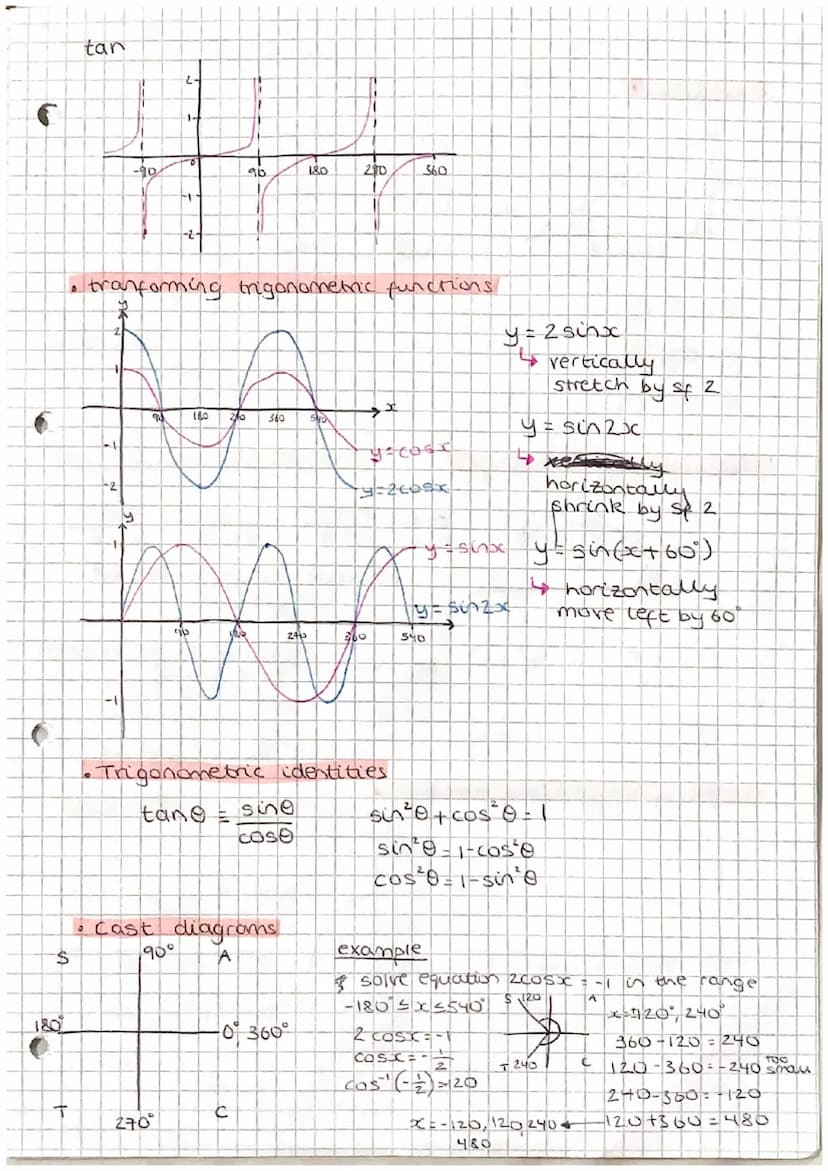 tan
2
1
-90 0 90 180 270 360
-1
-2
• tranforming trigonometric functions
y
2
1
90 180 270 360 540 x
-1
-2
y=cosx
y=2cosx
y = 2sinx
↳ vertically
stretch by sf 2
y = sin2x
↳
horizontally
shrink by sf 2
y = sin(x+60°)
↳ horizontally
move left by 60°
y
1
y=sinx
y=sin2x
90 180 270 360 540
-1
• Trigonometric identities
tanθ = sinθ
cosθ
sin²θ + cos²θ = 1
sin²θ = 1-cos²θ
cos²θ = 1-sin²θ
• Cast diagrams
S 90° A
180° 0°, 360°
T 270° C
example
solve equation 2cosx = -1 in the range
-180° ≤ x ≤ 540°
2cosx = -1
cosx = -1/2
cos⁻¹(-1/2) = 120
S 120 A
T 240 C
x = 120°, 240°
360 - 120 = 240
120 - 360 = -240 too small
240 - 360 = -120
120 + 360 = 480
x = -120, 120, 240
480